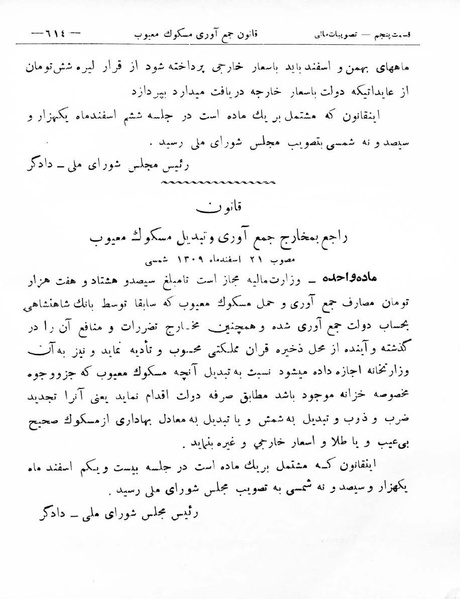 قسمت پنجم — تصویبات مالی
قانون جمع آوری مسکوك معیوب
—٦١٤—
ماههای بهمن و اسفند باید باسعار خارجی پرداخته شود از قرار لیره شش تومان
از عایداتیکه دولت باسعار خارجه دریافت میدارد بپردازد
اینقانون که مشتمل بر یك ماده است در جلسه ششم اسفندماه یکهزار و
سیصد و نه شمسی بتصویب مجلس شورای ملی رسید .
رئیس مجلس شورای ملی ـ دادگر
قانون
راجع بمخارج جمع آوری و تبدیل مسکوك معیوب
مصوب ٢١ اسفندماه ١٣٠٩ شمسی
ماده واحده ـ وزارت مالیه مجاز است تامبلغ سیصدو هشتاد و هفت هزار
تومان مصارف جمع آوری و حمل مسکوك معیوب که سابقا توسط بانك شاهنشاهی
بحساب دولت جمع آوری شده و همچنین مخارج تضررات و منافع آن را در
گذشته و آینده از محل ذخیره قران مملکتی محسوب و تأدیه نماید و نیز به آن
وزارتخانه اجازه داده میشود نسبت به تبدیل آنچه مسکوك معیوب که جزو وجوه
مخصوصه خزانه موجود باشد مطابق صرفه دولت اقدام نماید یعنی آنرا تجدید
ضرب و ذوب و تبدیل به شمش و یا تبدیل به معادل بهاداری از مسکوك صحیح
بی‌عیب و یا طلا و اسعار خارجی و غیره بنماید .
اینقانون کـه مشتمل بریك ماده است در جلسه بیست و یکم اسفند ماه
یکهزار و سیصد و نه شمسی به تصویب مجلس شورای ملی رسید .
رئیس مجلس شورای ملی ـ دادگر